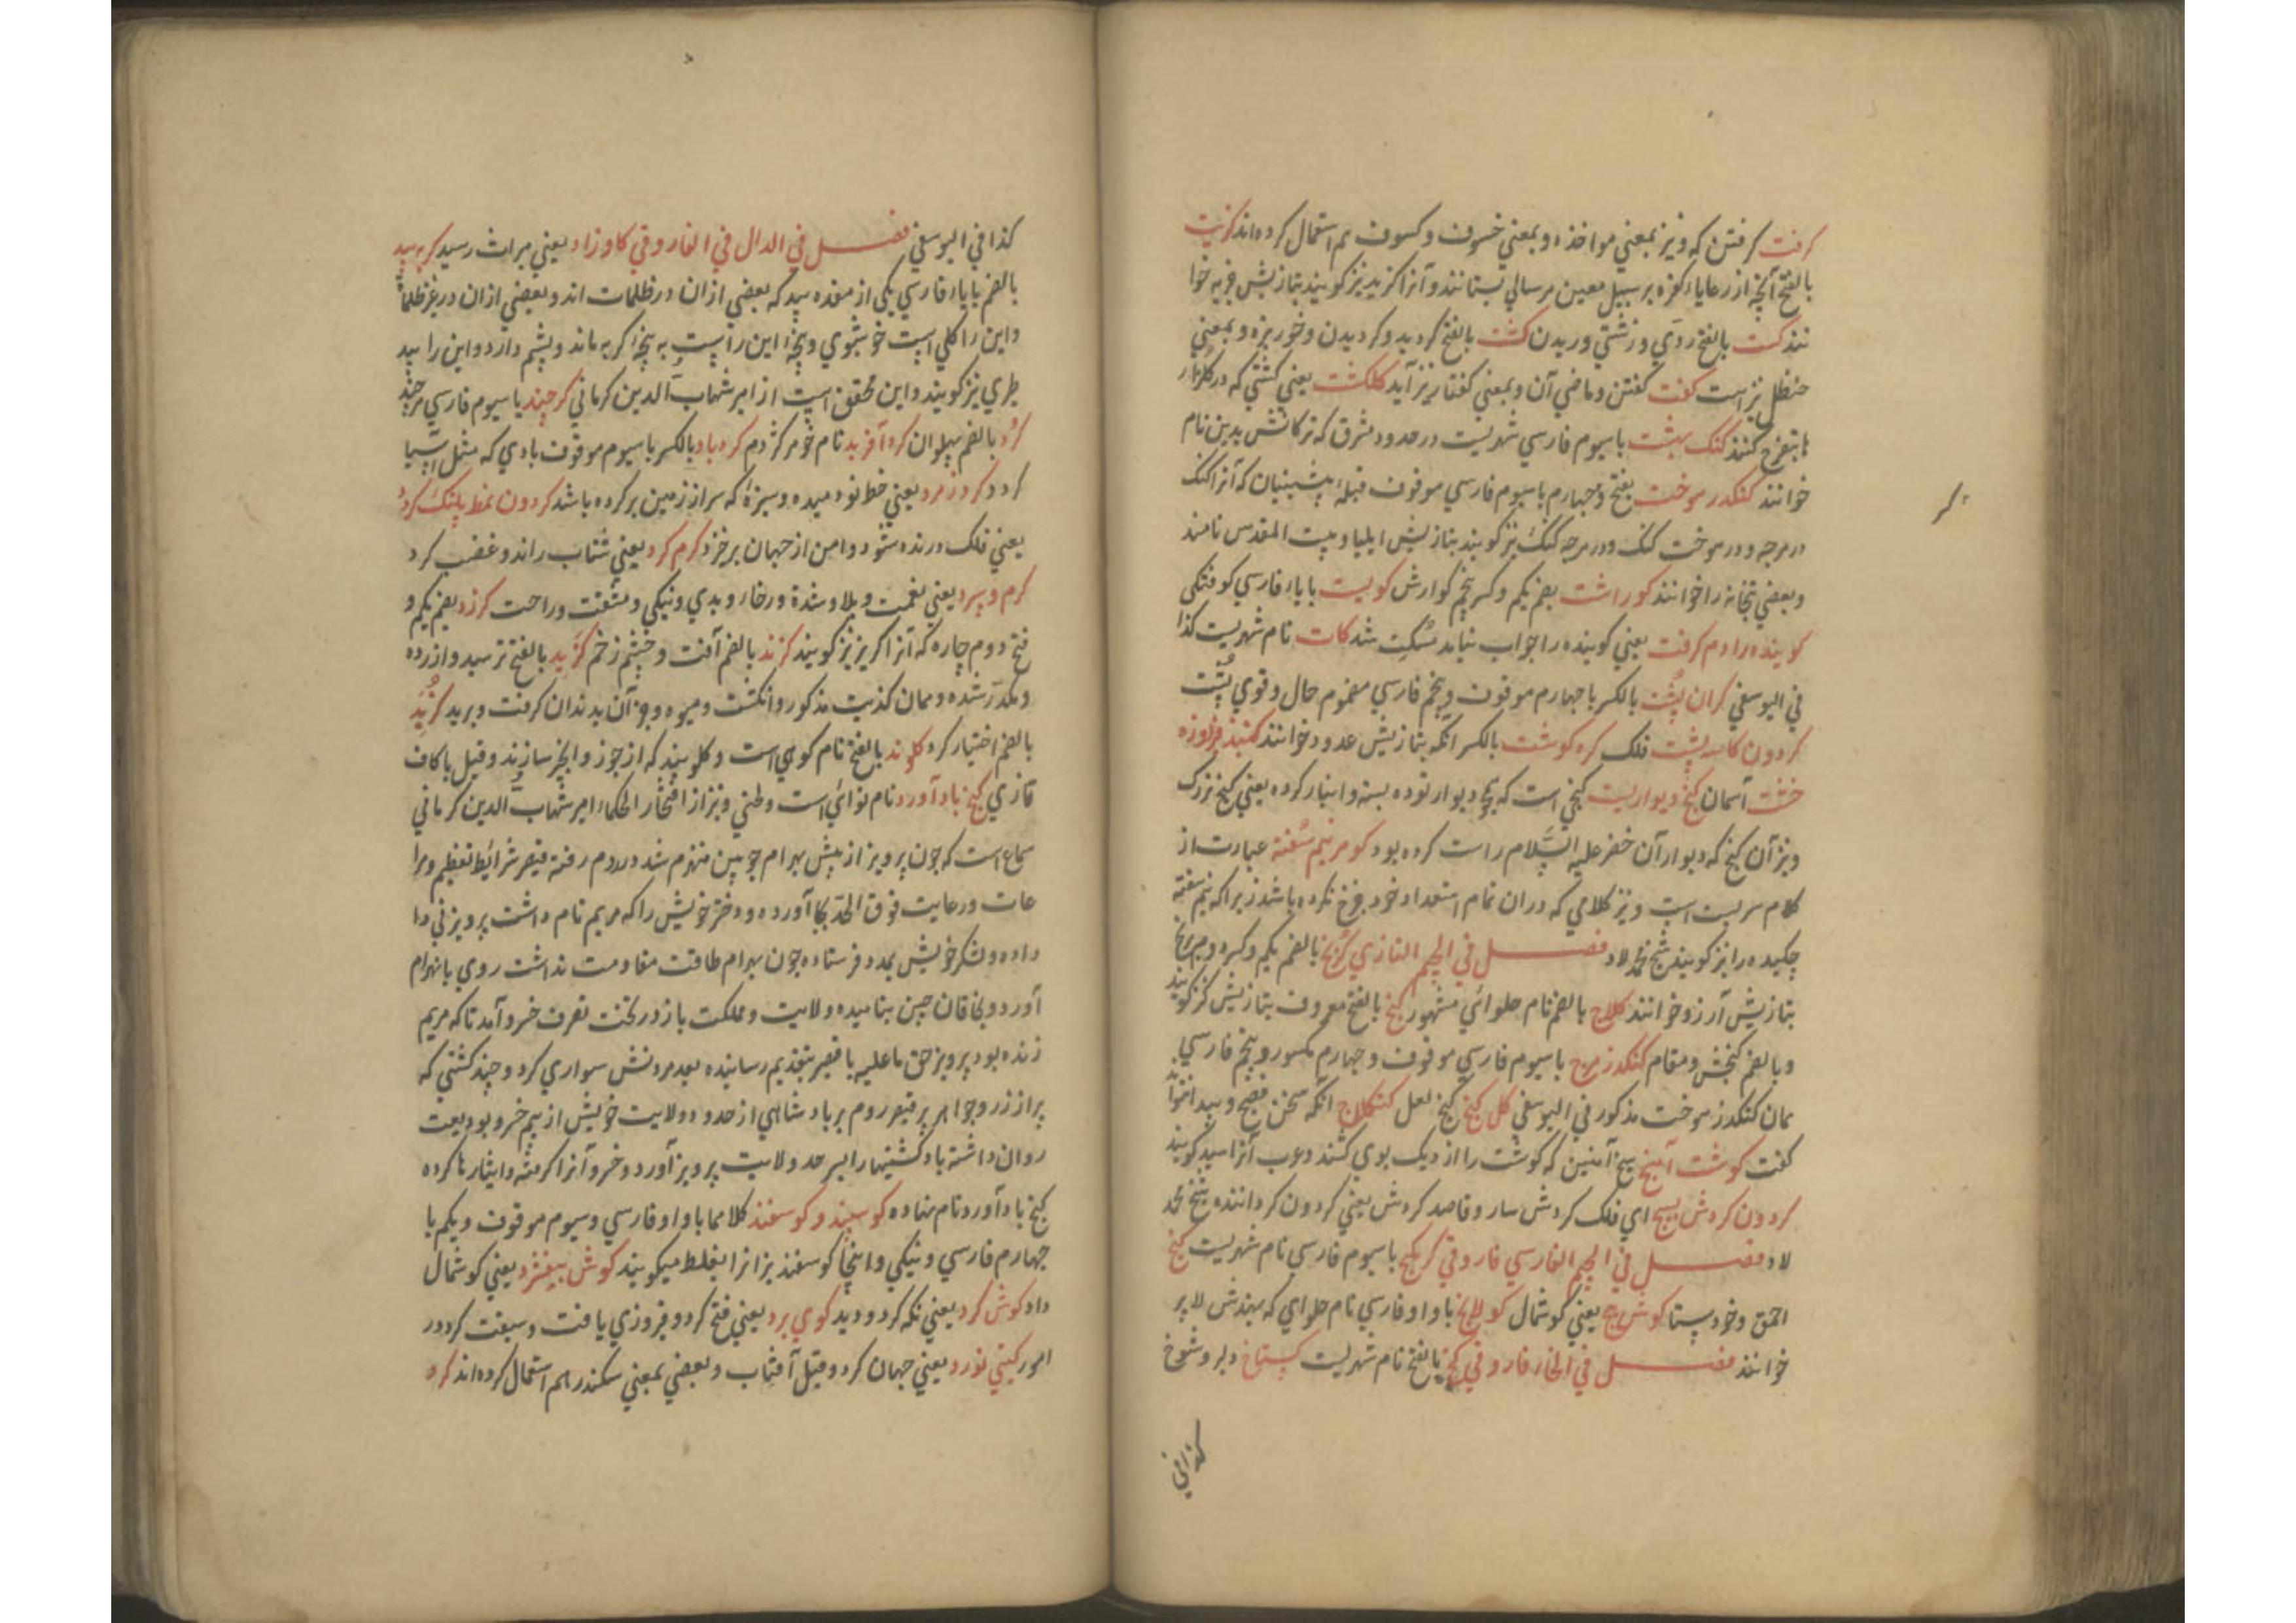 گرفت گرفتن که ویز بمعني مواخذه و بمعني خسوف و کسوف هم استعمال کرده اند گزیت
بالفتح آنچه از رعایا کفره بر سبیل معین هر سالي بستانند و آنرا گزید نیز گویند بتازیش جزیه خوا
نند گست بالفتح ردي و زشتي وریدن گشت بالفتح گردید و گردیدن و خوربزه و بمعني
حنظل نیز است گفت گفتن و ماضي آن و بمعني گفتار نیز آید گلگشت یعني گشتي که در گلزار
تا بتفرج کنند گنگ بهشت باسیوم فارسي شهریست در حدود مشرق که ترکانش بدین نام
خوانند گنگدر هوخت بفتح و چهارم باسیوم فارسي موقوف قبلهٔ پیشینیان که آنرا گنگ
در هرجه و در هوخت گنگ و در هرجه گنگ نیز گویند بتازیش ایلیا و بیت المقدس نامند
و بعضي بتخانه را خوانند گوراشت بضم یکم و کسر پنجم گوارش گویست باباء فارسي کوفتگی
گوینده را دم گرفت یعني گوینده را جواب نیاید مسکت شد گات نام شهریست کذا
في الیوسفي گران پشت بالکسر با چهارم موقوف و پنجم فارسي مضموم حال و قوي پشت
گردون کاسه پشت فلک گره گوشت بالکسر انکه بتازیش غدود خوانند گنبد فیروزه
خشت آسمان گنج دیواریست گنجي است که بیخ دیوار توده بسته و انبار کرده یعني گنج بزرک
ویز آن گنج که دیوار آن خضر علیه السلام راست کرده بود گوهر نیم سفته عبارت از
کلام سربسته است ویز کلامي که دران تمام استعداد خود خرج نکرده باشد زیرا که نیم سفته
چکیده را نیز گویند شیخ محمد لاد فصل في الجیم التازي گرنج بالضم یکم و کسر دوم برنج
بتازیش آرز و خوانند گلاج بالضم نام حلوائي مشهور گنج بالفتح معروف بتازیش کنز گویند
و بالضم گنجش و مقام گنگدز هرج باسیوم فارسي موقوف و چهارم مکسور و پنجم فارسي
همان گنگدز هوخت مذکور في الیوسفي گل گنج گنج لعل گنگلاج انکه سخن فصیح و بید انتوا
گفت گوشت آهنج سیخ آهنین که گوشت را از دیک بوي کشند و عرب آنرا سید گویند
گردون گردش بسیج اي فلک گردش سار و قاصد گردش یعني گردون گرداننده شیخ محمد
لاد فصل في الجیم الفارسي فاروقي گریچ باسیوم فارسي نام شهریست گیج
احمق و خودستا گوش پیچ یعني گوشمال گولانج باواو فارسي نام حلواي که بهندش لاپر
خوانند فصل في الخاء فاروقي گنج بالفتح نام شهریست گستاخ دلیر و شوخ
کذا في
کذا في الیوسفي فصل في الدال في الفاروقي گاوزاد یعني میراث رسید گربه بید
بالضم باباء فارسي یکی از هفده بید که بعضي از ان در ظلمات اند و بعضي از ان در غیر ظلمات
و این را گلي است خوشبوي و پنجهٔ این راست به پنجهٔ گربه ماند و پشم دارد و این را بید
طبري نیز گویند و این محقق است از امیر شهاب الدین کرماني گرچند باسیوم فارسي هرچند
گرد بالضم پهلوان گردآفرید نام خوهر گژدهم گردباد بالکسر باسیوم موقوف بادي که مثل آسیا
گردد گرد زمرد یعني خط نو دمیده و سبزهٔ که سر از زمین برکرده باشد گردون نمط پلنگ گردد
یعني فلک درنده شود و امن از جهان برخیزد گرم کرد یعني شتاب راند و غضب کرد
گرم و سرد یعني نعمت و بلا و شدة و رخا و بدي و نیکي و مشقت و راحت گرزد بضم یکم و
فتح دوم چاره که آنرا گریز نیز گویند گزند بالضم آفت و چشم زخم گزید بالفتح ترسید و آزرده
و مکدر شده و همان گذیت مذکور و انگشت و میوه و جز آن بدندان گرفت و برید گزید
بالضم اختیار کرد گلوند بالفتح نام کوهي است و گلوبند که از جوز و انجیر سازند و قیل با کاف
تازي گنج باد آورد نام نوائي است و طني ویز از افتخار الحکماء امیر شهاب الدین کرماني
سماع است که چون پرویز از پیش بهرام چوبین منهزم شد در روم رفته قیصر شرائط تعظیم و مرا
عات و رعایت فوق الحد بجا آورده و دختر خویش را که مریم نام داشت پرویز في دا
داده و لشکر خویش بمدد فرستاده چون بهرام طاقت مقاومت نداشت روي بانهزام
آورد و بخاقان چین بنامیده ولایت و مملکت باز در تحت تصرف خسرو آمد تا که مریم
زنده بود پرویز حق ما علیه با قیصر بتقدیم رسانیده بعد مردنش سواري کرد و چند کشتي که
پر از زر و جواهر پر قیصر روم بر باد شاهي از حدود ولایت خویش از بیم خسرو بودیعت
روان داشته باد کشتیها را بسرحد ولایت پرویز آورد و خسرو آنرا گرفته و ایثار نا کرده
گنج باد آورد نام نهاده گوسپند و گوسفند کلاهما باواو فارسي و سیوم موقوف و یکم با
چهارم فارسي و نیکي و اینجا گوسفند نیز انرا بغلط میگویند گوش بپیفزد یعني گوشمال
داد گوش کرد یعني نگه کرد و دید گوي برد یعني فتح کرد و فیروزي یافت و سبقت کرد در
امور گیتي نورد یعني جهان گرد و قیل آفتاب و بعضي بمعني سکندر هم استعمال کرده اند گرد